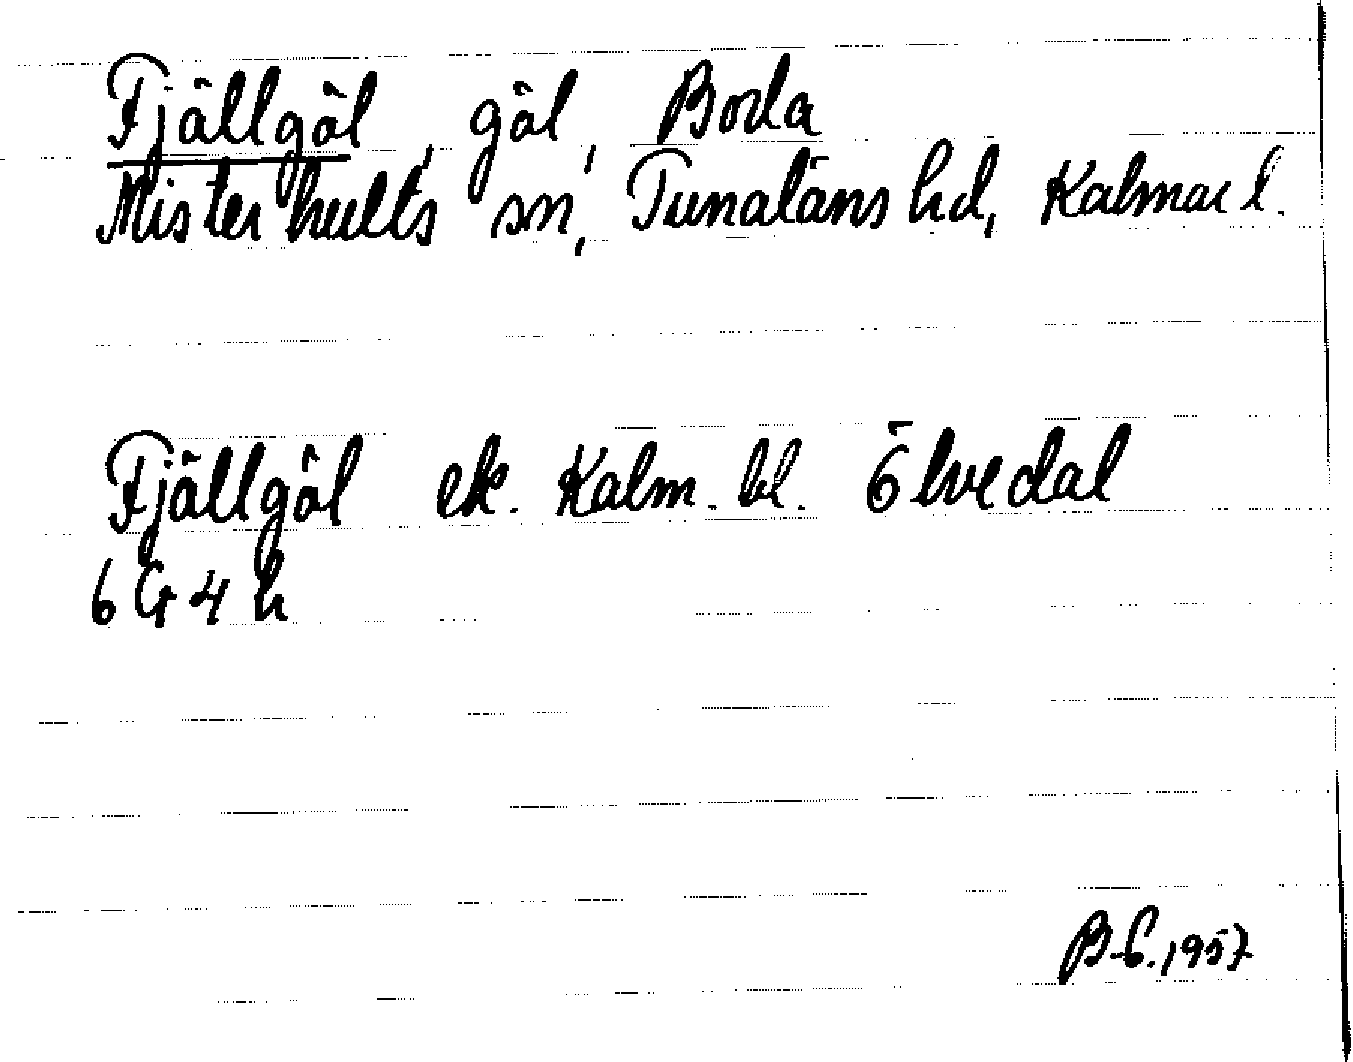 Fjällgöl, göl, Boda
Misterhults sn, Tunaläns hd, Kalmar l.
Fjällgöl ek. Kalm. bl. Ölvedal
6 G 4 h
B-E. 1957